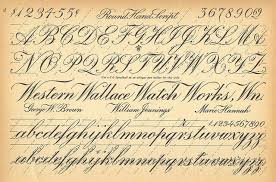 $1234556 Round Hand Script 367890
ABCDEFGHIJKLM
NOPQRSTUVWXYZ
Western Wallace Watch Works, Wn.
Geo. W. Brown William Jennings Marie Hannah
1234567890
abcdefghijklmnopqrstuvwxyz
abcdefghijklmnopqrstuvwxyz